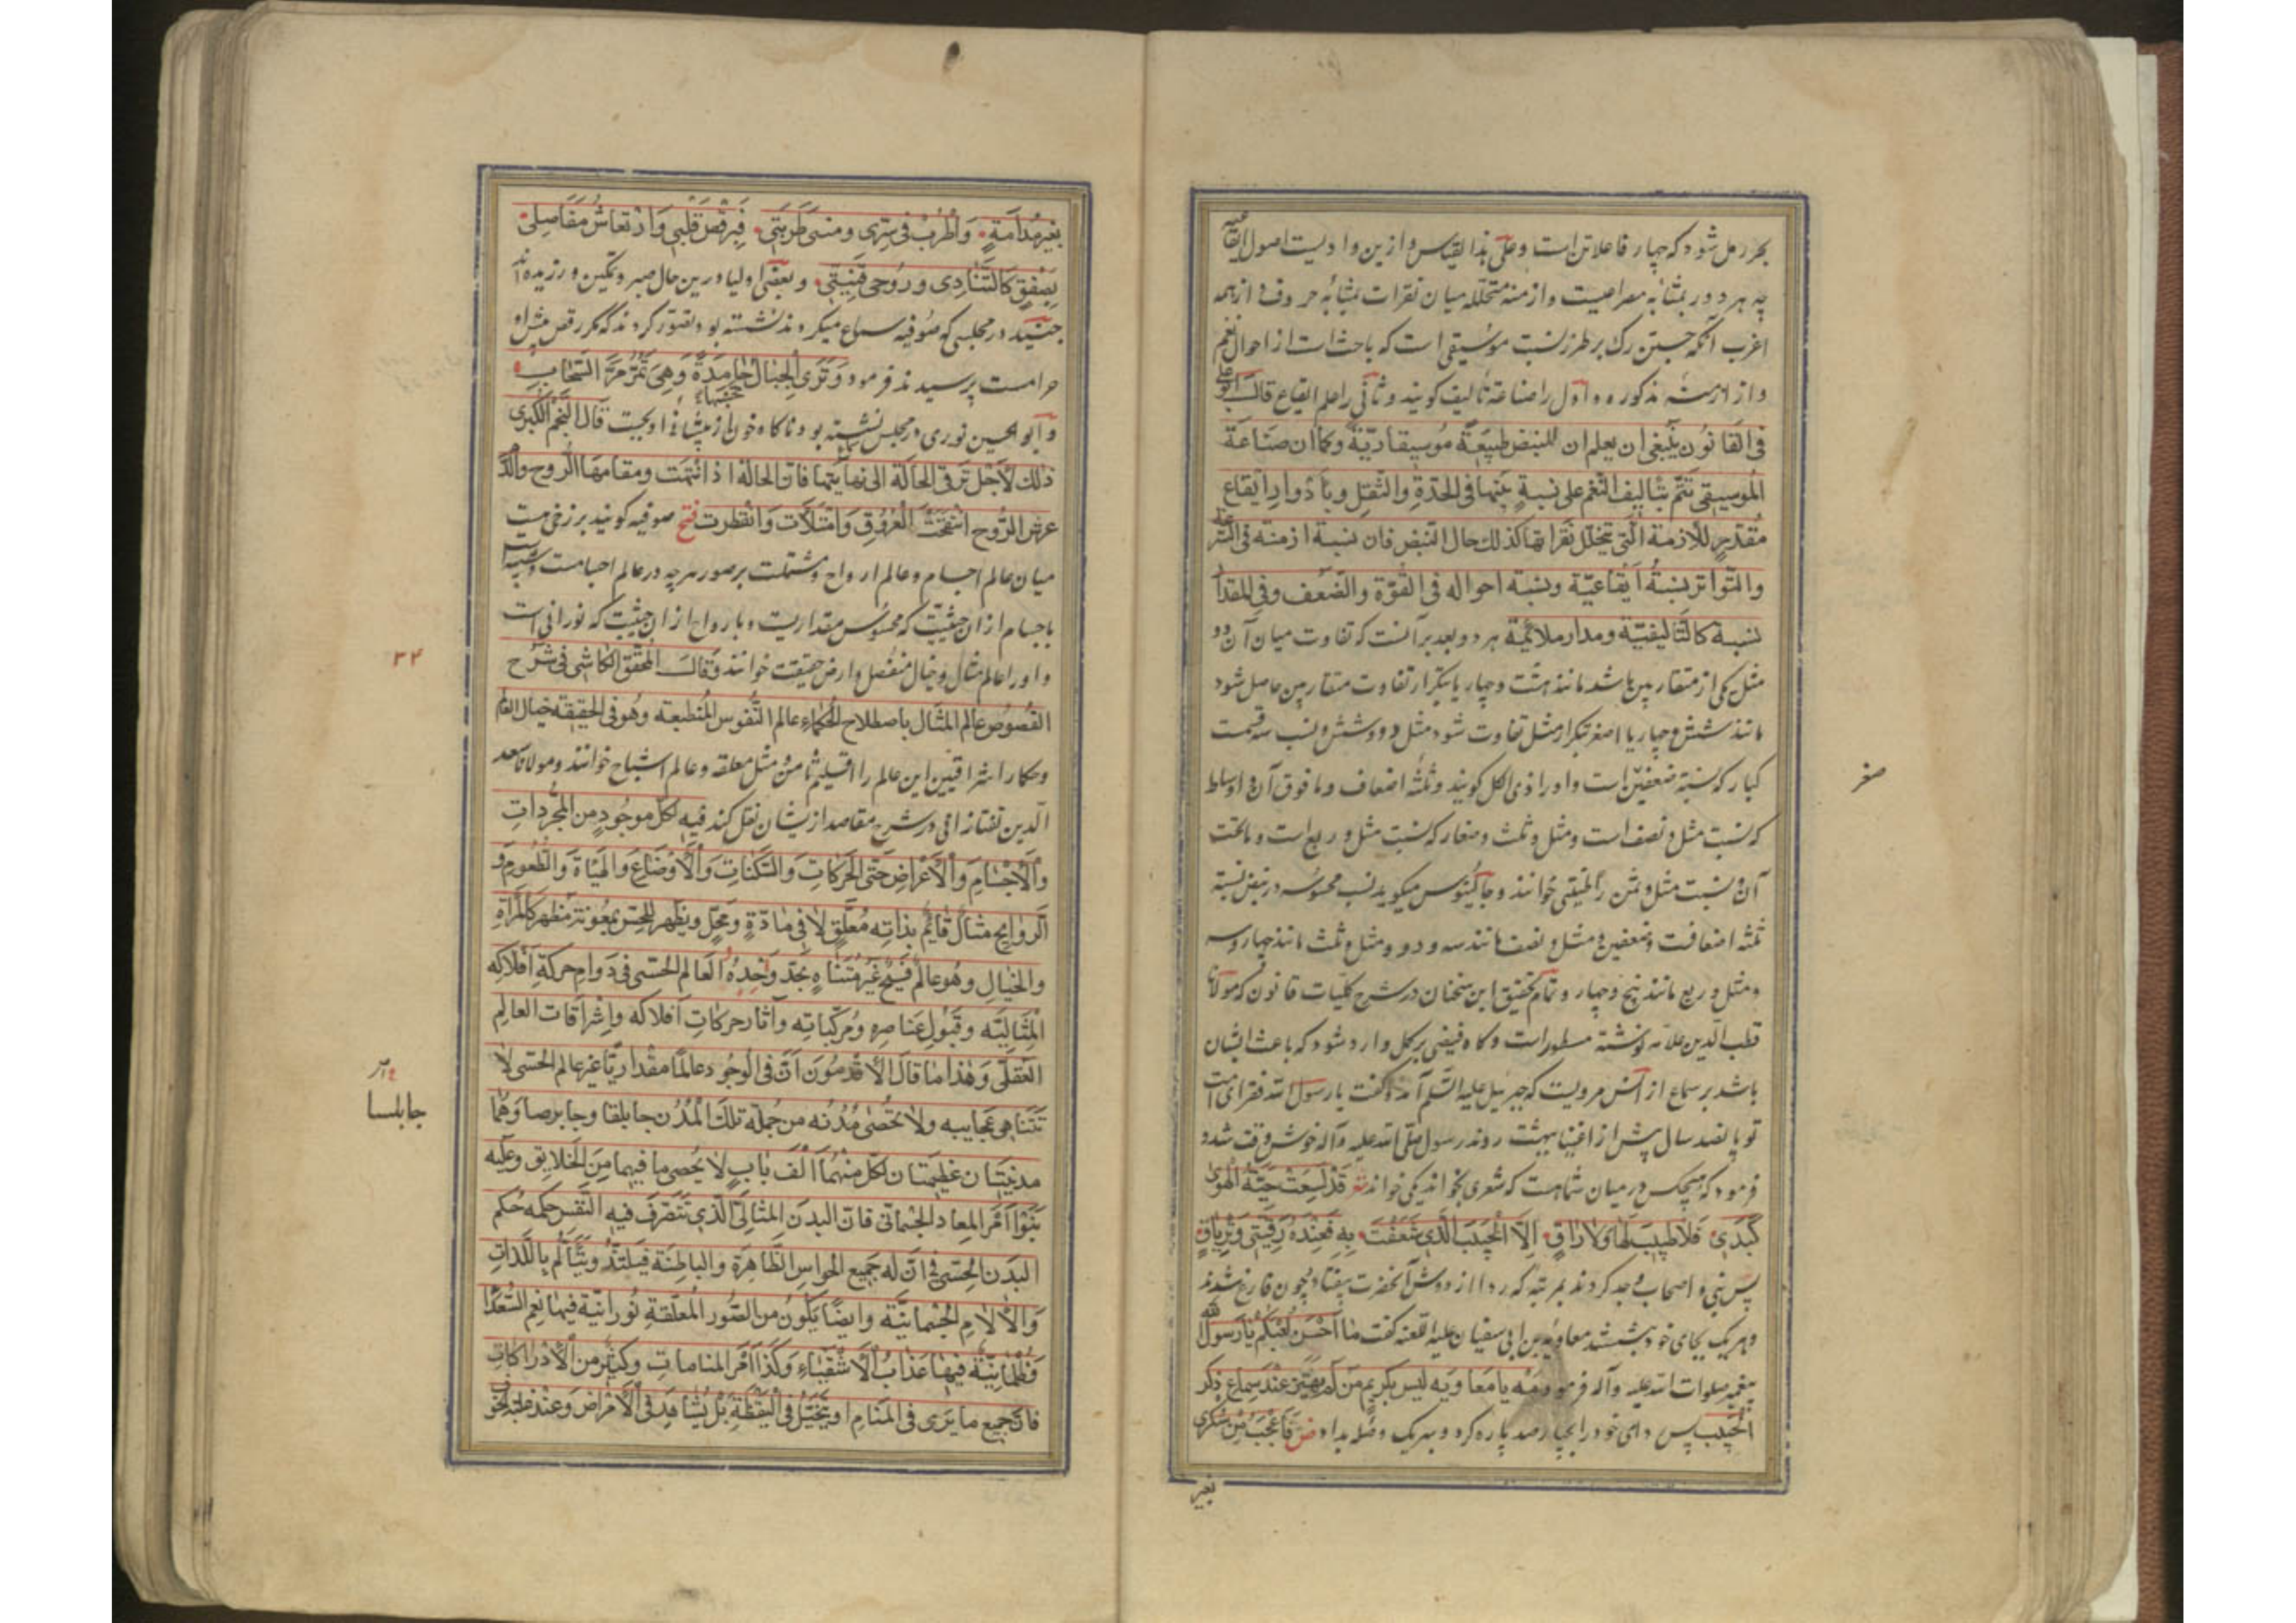 بحر رمل شود که چهار فاعلاتن است وعلی هذا القیاس وازین وادیست اصول ایقاعیه
چه هر دور بمثابه مصراعیست وازمنه متخلله میان نقرات بمثابه حروف و از همه
اغرب آنکه جستن رک بر طرز نسبت موسیقی است که باحث است از احوال نغم
واز ازمنه مذکوره واول را صناعة تألیف کویند وثانی را علم ایقاع قال ابوعلی
فی القانون ینبغی ان یعلم ان للنبض طبیعة موسیقاریّة وکما ان صناعة
الموسیقی تتم بتألیف النغم علی نسبةٍ بینها فی الحدّة والثقل وبأدوار ایقاع
مقدّرٍ للأزمنة الّتی تتخلّل نقراتها کذلک حال النبض فان نسبة ازمنته فی السرعة
والتواتر نسبةٌ ایقاعیّة ونسبة احواله فی القوّة والضّعف وفی المقدار
نسبة کالتّألیفیّة ومدار ملائمة هر دو بعد بر آنست که تفاوت میان آن دو
مثل یکی از متقاربین باشد مانند هشت وچهار یا بتکرار تفاوت متقاربین حاصل شود
مانند شش وچهار یا اصغر بتکرار مثل تفاوت شود مثل دو وشش و نسب سه قسمت
کبار که نسبة ضعفین است واورا ذی الکل کویند وثلثه اضعاف وما فوق آن و اوساط
که نسبت مثل و نصف است ومثل وثلث وصغار که نسبت مثل و ربع است وماتحت
آن و نسبت مثل وثمن را طنینی خوانند وجالینوس میکوید نسب محسوسه در نبض نسبة
ثلثه اضعافست وضعفین و مثل و نصف مانند سه ودو ومثل وثلث مانند چهار وسه
ومثل وربع مانند پنج وچهار وتمام تحقیق این سخنان در شرح کلّیات قانون که مولانا
قطب الدین علامه نوشته مسطور است وکاه فیضی بر کل وارد شود که باعث ایشان
باشد بر سماع از انس مرویست که جبرییل علیه السّلم آمد و گفت یا رسول الله فقرای امت
تو پانصد سال پیش از اغنیا ببهشت روند رسول صلی الله علیه وآله خوش وقت شد و
فرمود که هیچکس در میان شما هست که شعری بخواند یکی خواند شعر قد لسعت حیّة الهوی
کبدی فلا طبیب لها ولا راقٍ الا الحبیب الذی شغفت به فعنده رقیتی وتریاقی
پس نبی و اصحاب وجد کردند بمرتبه که ردا از دوش آنحضرت بیفتاد و چون فارغ شدند
وهریک بجای خود بنشستند معاویه بن ابی سفیان علیه اللعنه گفت ما احسن لعبکم یا رسول الله
پیغمبر صلوات الله علیه وآله فرمود مه یا معاویه لیس بکریم من لم یهتز عند سماع ذکر
الحبیب پس ردای خود را بچهارصد پاره کرد و بهریک وصله بداد ض فاعجب من سکری
بغیر
صغر
بغیر مدامةٍ واطرب فی سرّی ومنی طربتی فیرقص قلبی وارتعاش مفاصلی
یصفّق کالشادی وروحی قینتی وبعضی اولیا درین حال صبر وتمکین ورزیده اند
جنید در مجلسی که صوفیه سماع میکردند نشسته بود تصوّر کردند که مکر رقص پیش او
حرامست پرسیدند فرمود وتری الجبال تحسبها جامدة وهی تمرّ مرّ السّحاب
وابو الحسین نوری در مجلس نشسته بود ناکاه خون از پیشانی او بجست قال النجم الکبری
ذلک لأجل ترقی الحالة الی نهایتها فان الحالة اذا تمت ومقامها الروح والدّم
عرش الرّوح انتفخت العروق وامتلأت وانفطرت فتح صوفیه کویند برزخی هست
میان عالم اجسام وعالم ارواح ومشتملست بر صور هرچه در عالم اجسامست وشبیه است
باجسام ازان حیثیت که محسوس مقداریست و بارواح از ان حیثیت که نورانی است
واورا عالم مثال وخیال منفصل وارض حقیقت خوانند وقال المحقق الکاشی فی شرح
الفصوص عالم المثال باصطلاح الحکماء عالم النّفوس المنطبعه وهو فی الحقیقة خیال العالم
وحکماء اشراقیین این عالم را اقلیم ثامن و مثل معلقه وعالم اشباح خوانند ومولانا سعد
الدین تفتازانی در شرح مقاصد ازیشان نقل کند فیه لکل موجودٍ من المجرّدات
والأجسام والأعراض حتی الحرکات والسّکنات والأوضاع والهیئاة والطعوم و
الروایح مثال قایم بذاته معلّق لا فی مادّةٍ ومحلٍ ویظهر للحسّ بمعونة مظهر کالمرآة
والخیال وهو عالم فسیح غیر متناهٍ یحذو حذو العالم الحسّی فی دوام حرکة افلاکه
المثالیّه وقبول عناصره ومرکّباته وآثار حرکات افلاکه واشراقات العالم
العقلی وهذا ما قال الأقدمون ان فی الوجود عالمًا مقداریًا غیر عالم الحسی لا
تتناهی عجایبه ولا تحصی مدنه من جملة تلک المدن جابلقا وجابرصا وهما
مدینتان عظیمتان لکل منهما الف باب لا یحصی ما فیهما من الخلایق وعلیه
بنوا امر المعاد الجسمانی فان البدن المثالی الذی تتصرّف فیه النّفس حکمه حکم
البدن الحسّی فی ان له جمیع الحواس الظاهرة والباطنة فیلتذّ ویتألم باللّذات
والآلام الجسمانیّه وایضًا یکون من الصّور المعلّقة نورانیّة فیها نعم السّعداء
وظلمانیّة فیها عذاب الأشقیاء وکذا امر المنامات وکثیر من الأدراکات
فان جمیع ما یری فی المنام او یتخیّل فی الیقظة بل یشاهد فی الأمراض وعند غلبة الخوف
۳۴
جابلسا